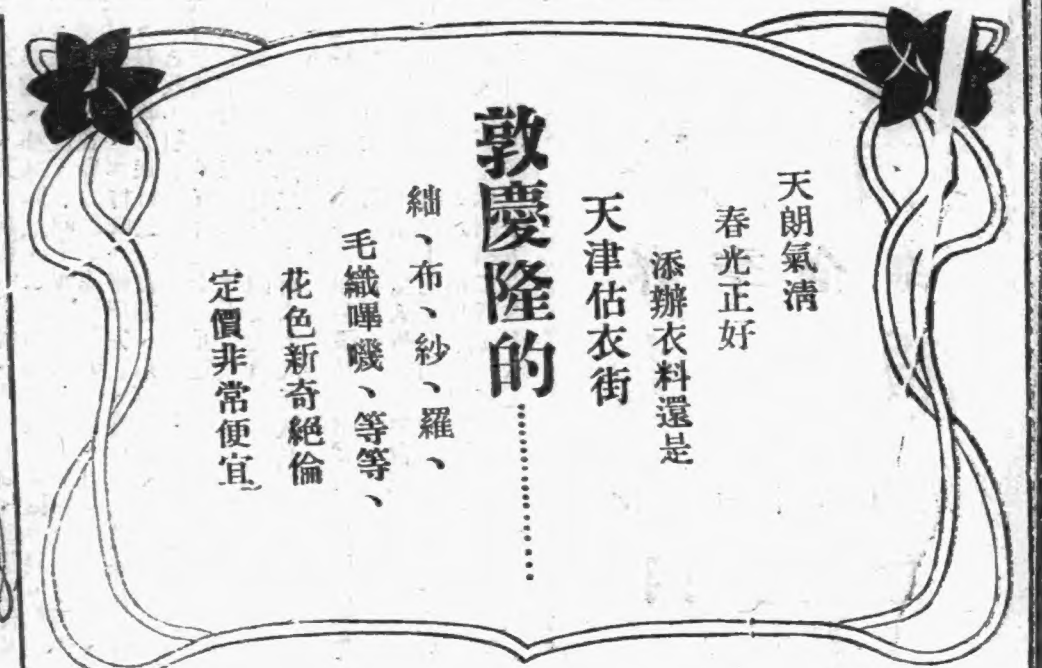 天朗氣清
春光正好
添辦衣料還是
天津估衣街
敦慶隆的…………
紬、布、紗、羅、
毛織嗶嘰、等等、
花色新奇絕倫
定價非常便宜